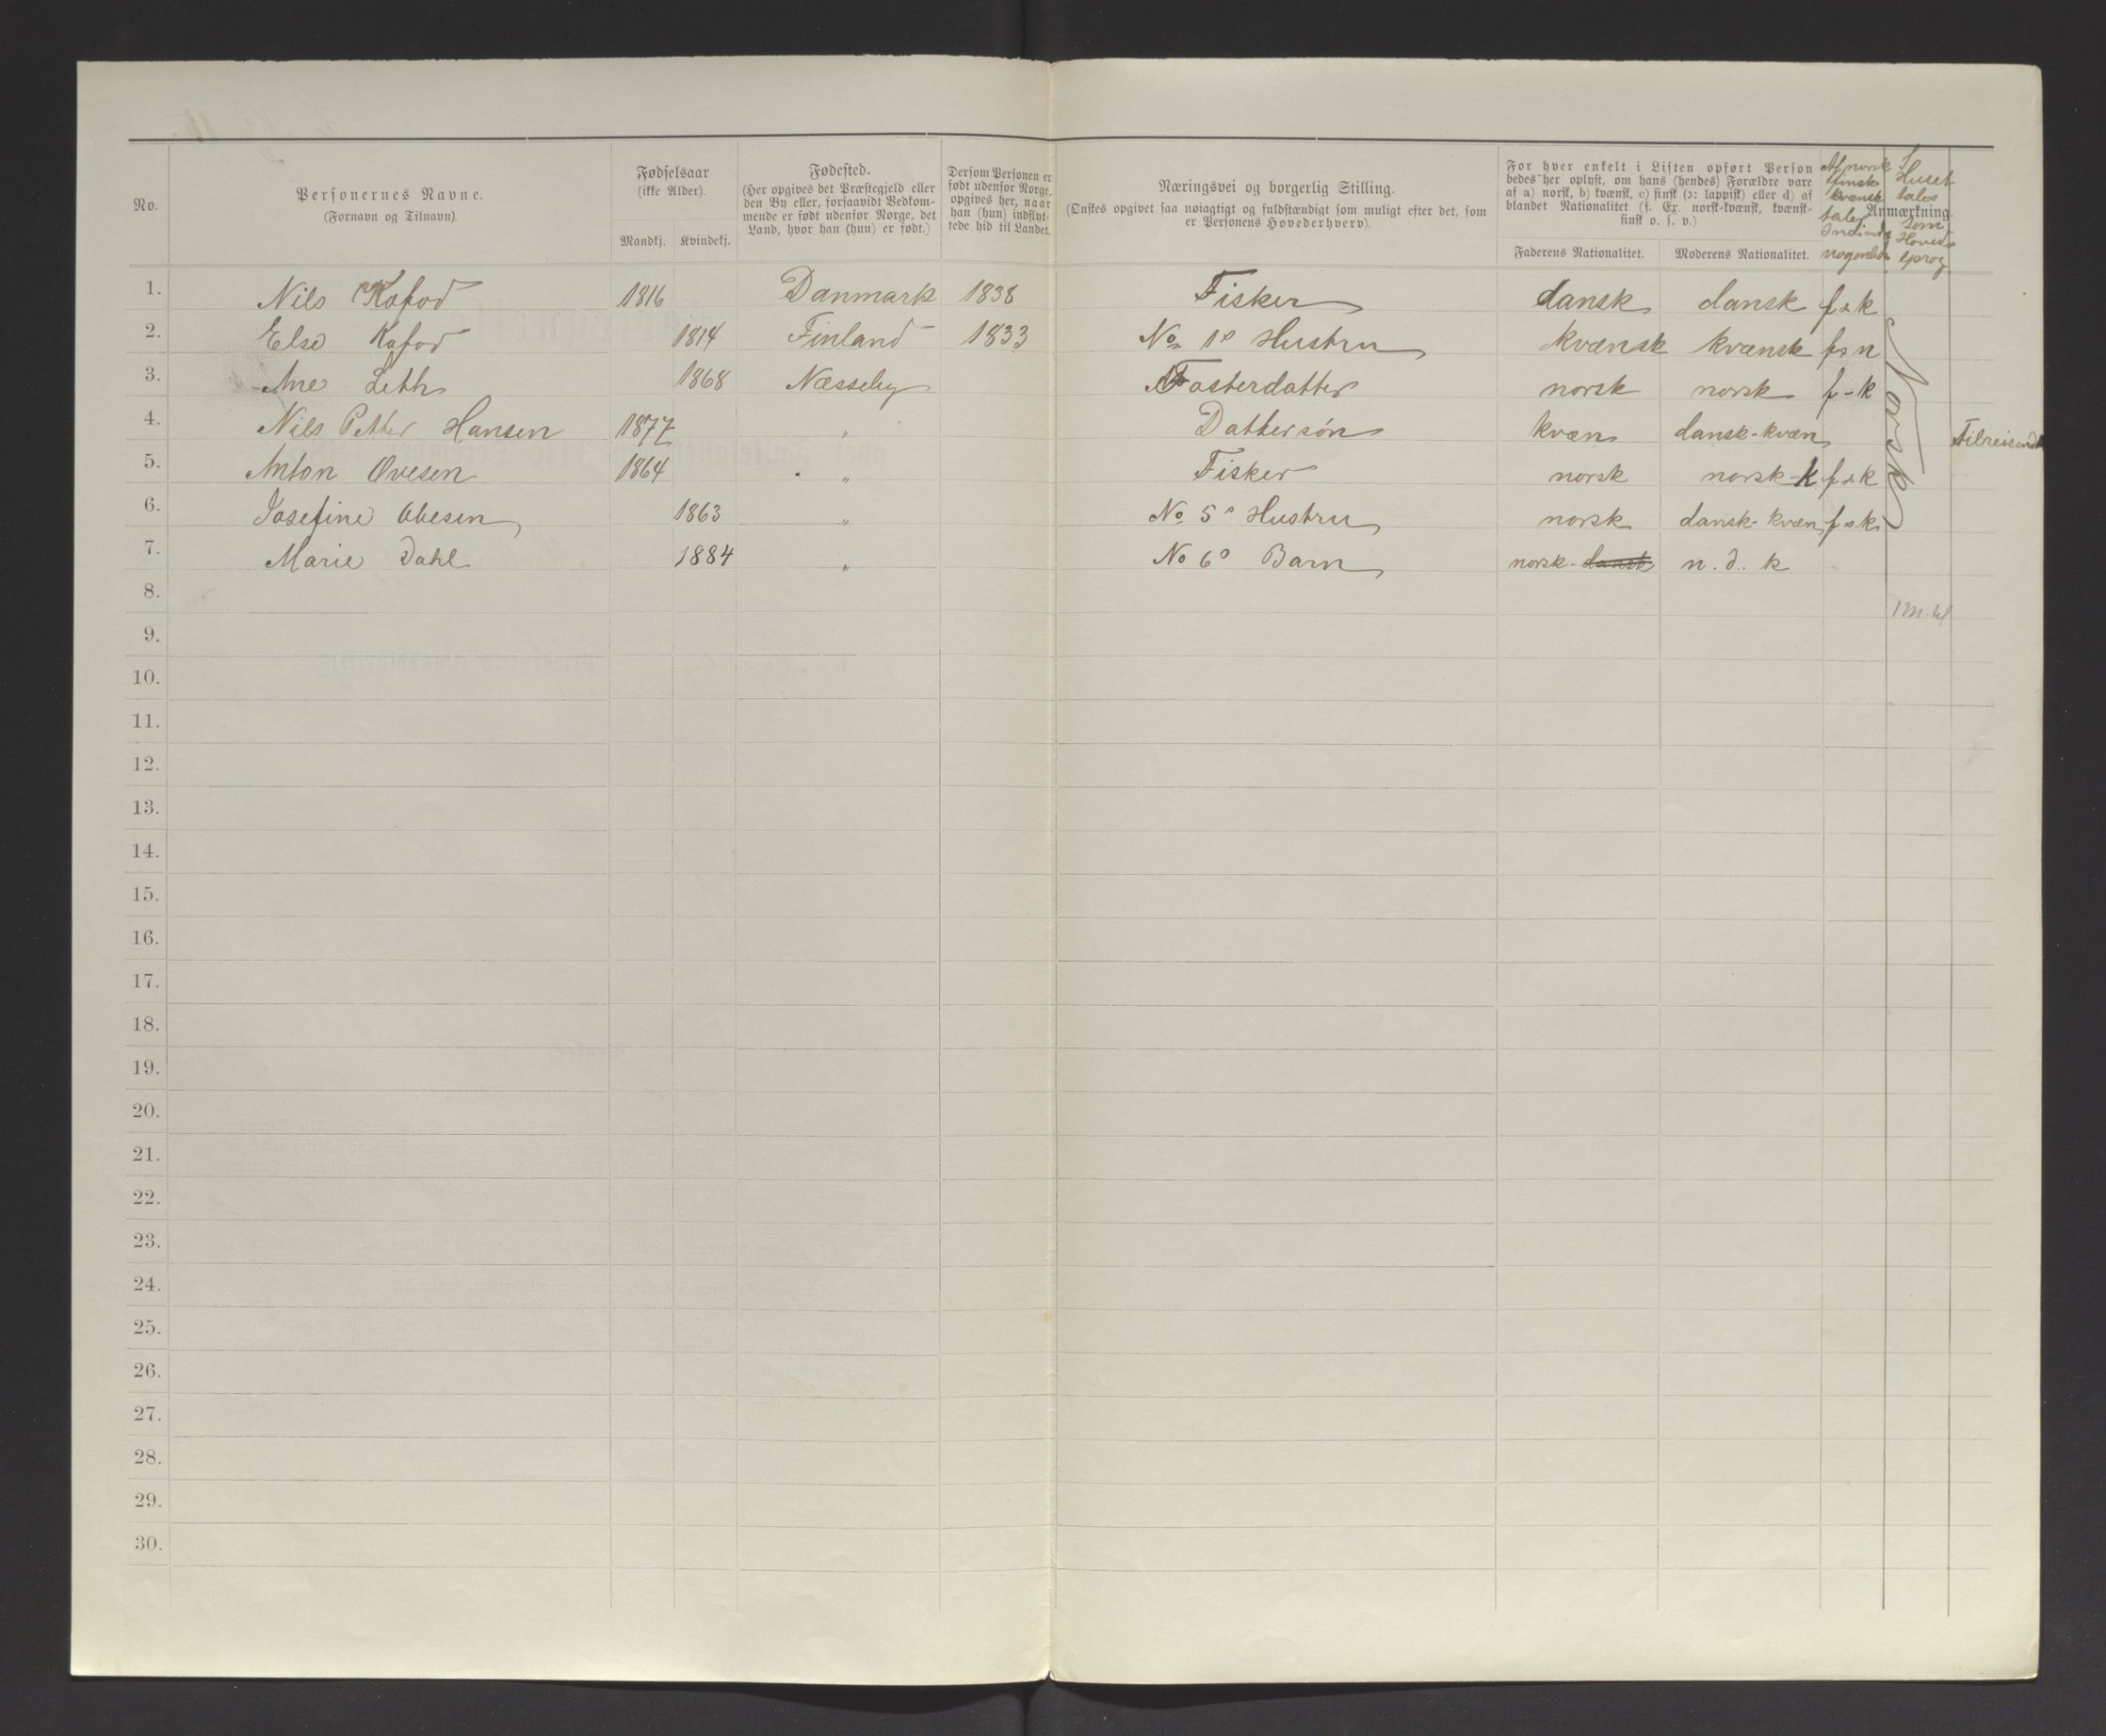 No.
Personernes Navne.
(Fornavn og Tilnavn).
Fødselsaar
(ikke Alder).
Mandkj. Kvindekj.
Fødested.
(Her opgives det Præstegjeld eller
den By eller, forsaavidt Vedkom-
mende er født udenfor Norge, det
Land, hvor han (hun) er født.)
Dersom Personen er
født udenfor Norge,
opgives her, naar
han (hun) indflyt-
tede hid til Landet.
Næringsvei og borgerlig Stilling.
(Ønskes opgivet saa nøiagtigt og fuldstændigt som muligt efter det, som
er Personens Hovederhverv).
For hver enkelt i Listen opført Person
bedes her oplyst, om hans (hendes) Forældre vare
af a) norsk, b) kvænsk, c) finsk (ɔ: lappisk) eller d) af
blandet Nationalitet (f. Ex. norsk-kvænsk, kvænsk-
finsk o. s. v.)
Faderens Nationalitet. Moderens Nationalitet.
Af norsk
finsk
kvænsk
taler
Individet
nogenledes
Anmærkning.
I
Huset
tales
som
Hoved-
sprog
1. Nils Kofod 1816 Danmark 1838 Fisker dansk dansk f & k
2. Else Kofod 1814 Finland 1833 No 1s Hustru kvænsk kvænsk f & n
3. Ane Leth 1868 Næsseby Fosterdatter norsk norsk f - k
4. Nils Petter Hansen 1877 " Dattersøn kvæn dansk-kvæn Tilreisende
5. Anton Ovesen 1864 " Fisker norsk norsk-k f & k
6. Josefine Ovesen 1863 " No 5s Hustru norsk dansk-kvæn f & k
7. Marie Dahl 1884 " No 6s Barn norsk-dansk n. d. k
Norsk
8.
9.
10.
11.
12.
13.
14.
15.
16.
17.
18.
19.
20.
21.
22.
23.
24.
25.
26.
27.
28.
29.
30.